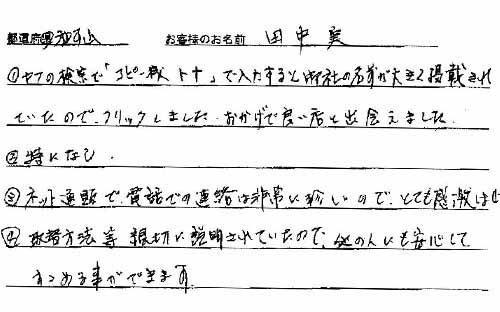 都道府県 和歌山 お客様のお名前 田中実
①ヤフの検索で「コピー機 トナー」で入力すると御社の名前が大きく掲載され
ていたので、クリックしました。おかげで良い店と出会えました。
②特になし.
③ネット通販で、電話での連絡は非常に珍しいので、とても感激
④取替方法等 親切に説明されていたので、他の人にも安心して
すゝめる事ができます。